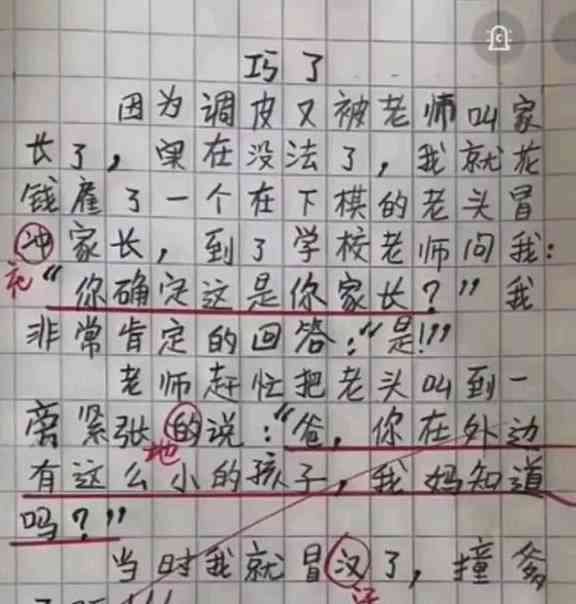 巧了
因为调皮又被老师叫家
长了，实在没法了，我就花
钱雇了一个在下棋的老头冒
冲家长，到了学校老师问我：
充
“你确定这是你家长？”我
非常肯定的回答：“是！”
老师赶忙把老头叫到一
旁紧张的说：“爸，你在外边
地
有这么小的孩子，我妈知道
吗？”
当时我就冒汉了，撞爹
汗